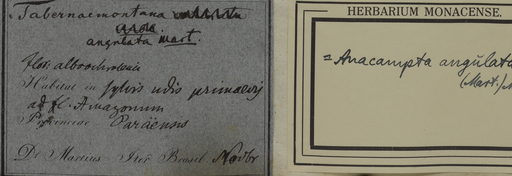 Tabernaemontana
angulata Mart.
flor. alboochroleuci
Habitat in sylvis udis primaevis
ad fl. Amazonum
Provinciae Paraënsis
De Martius Iter Brasil. Novbr
HERBARIUM MONACENSE.
= Anacampta angulata
(Mart.)